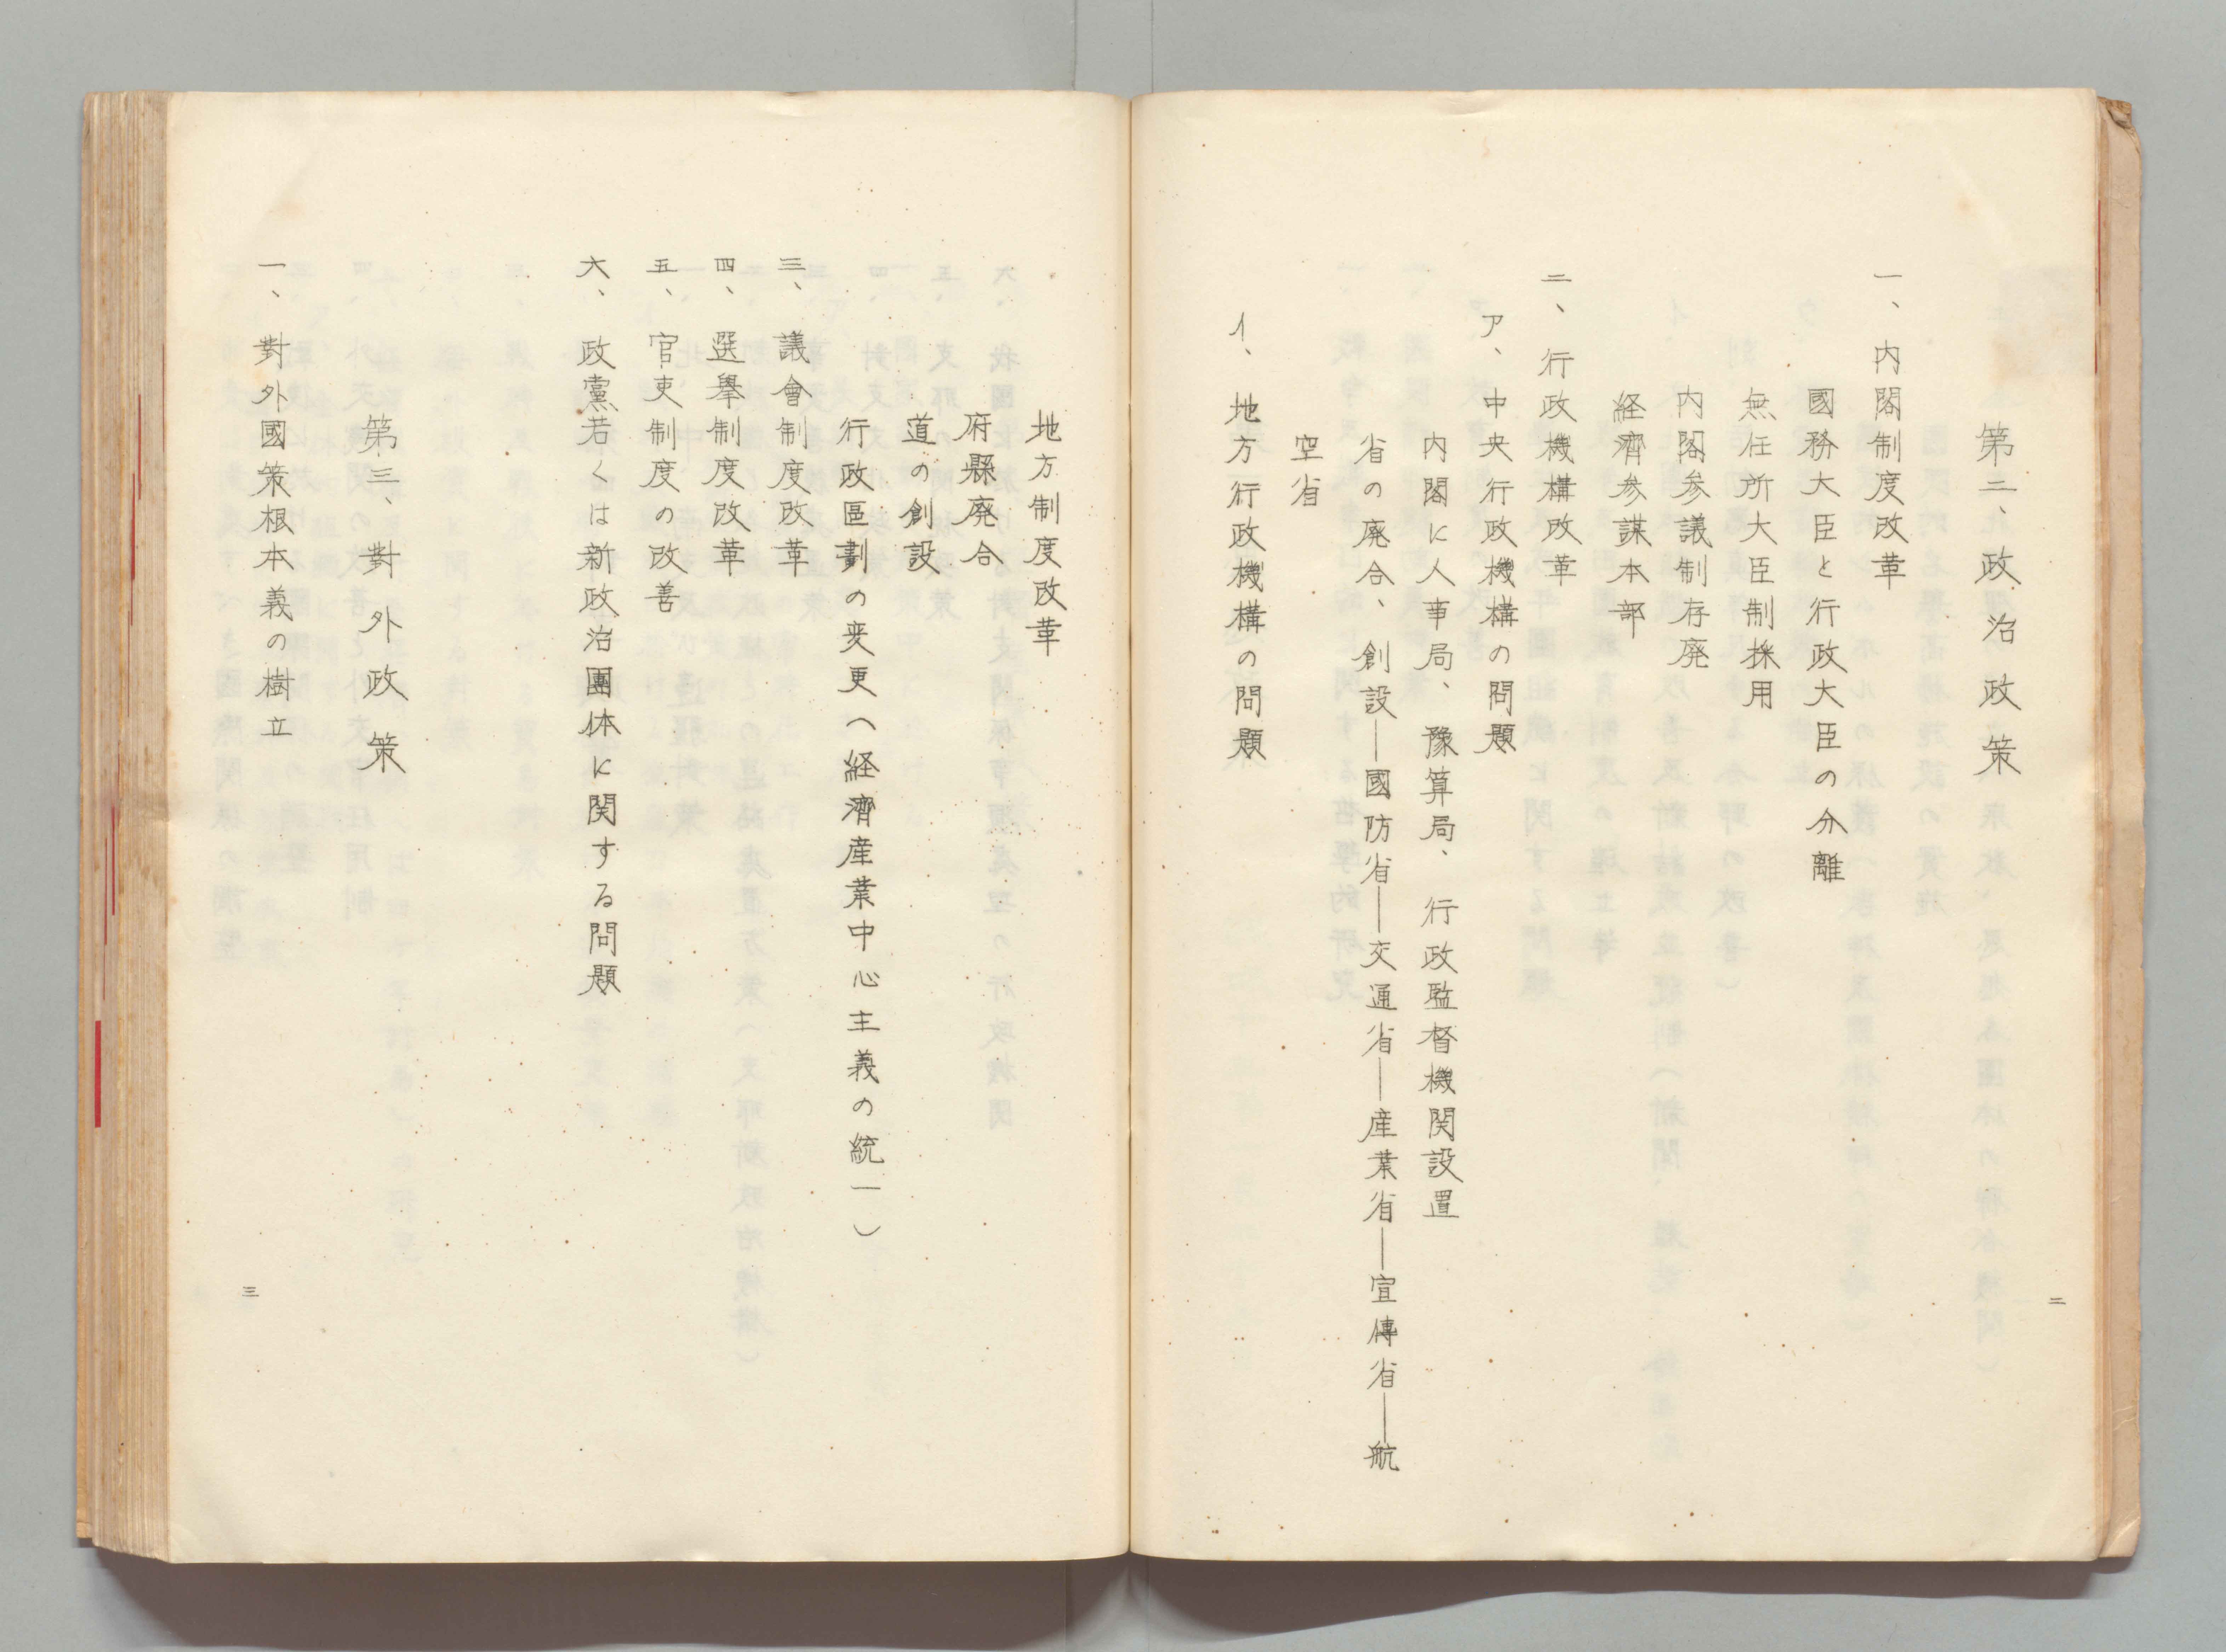 第二、政治政策
一、内閣制度改革
國務大臣と行政大臣の分離
無任所大臣制採用
内閣参議制存廃
経濟参謀本部
二、行政機構改革
ア、中央行政機構の問題
内閣に人事局、豫算局、行政監督機関設置
省の廃合、創設―國防省―交通省―産業省―宣傳省―航
空省
イ、地方行政機構の問題
二
地方制度改革
府縣廃合
道の創設
行政區劃の変更(経濟産業中心主義の統一)
三、議會制度改革
四、選擧制度改革
五、官吏制度の改善
六、政黨若くは新政治團体に関する問題
第三、對外政策
一、對外國策根本義の樹立
三